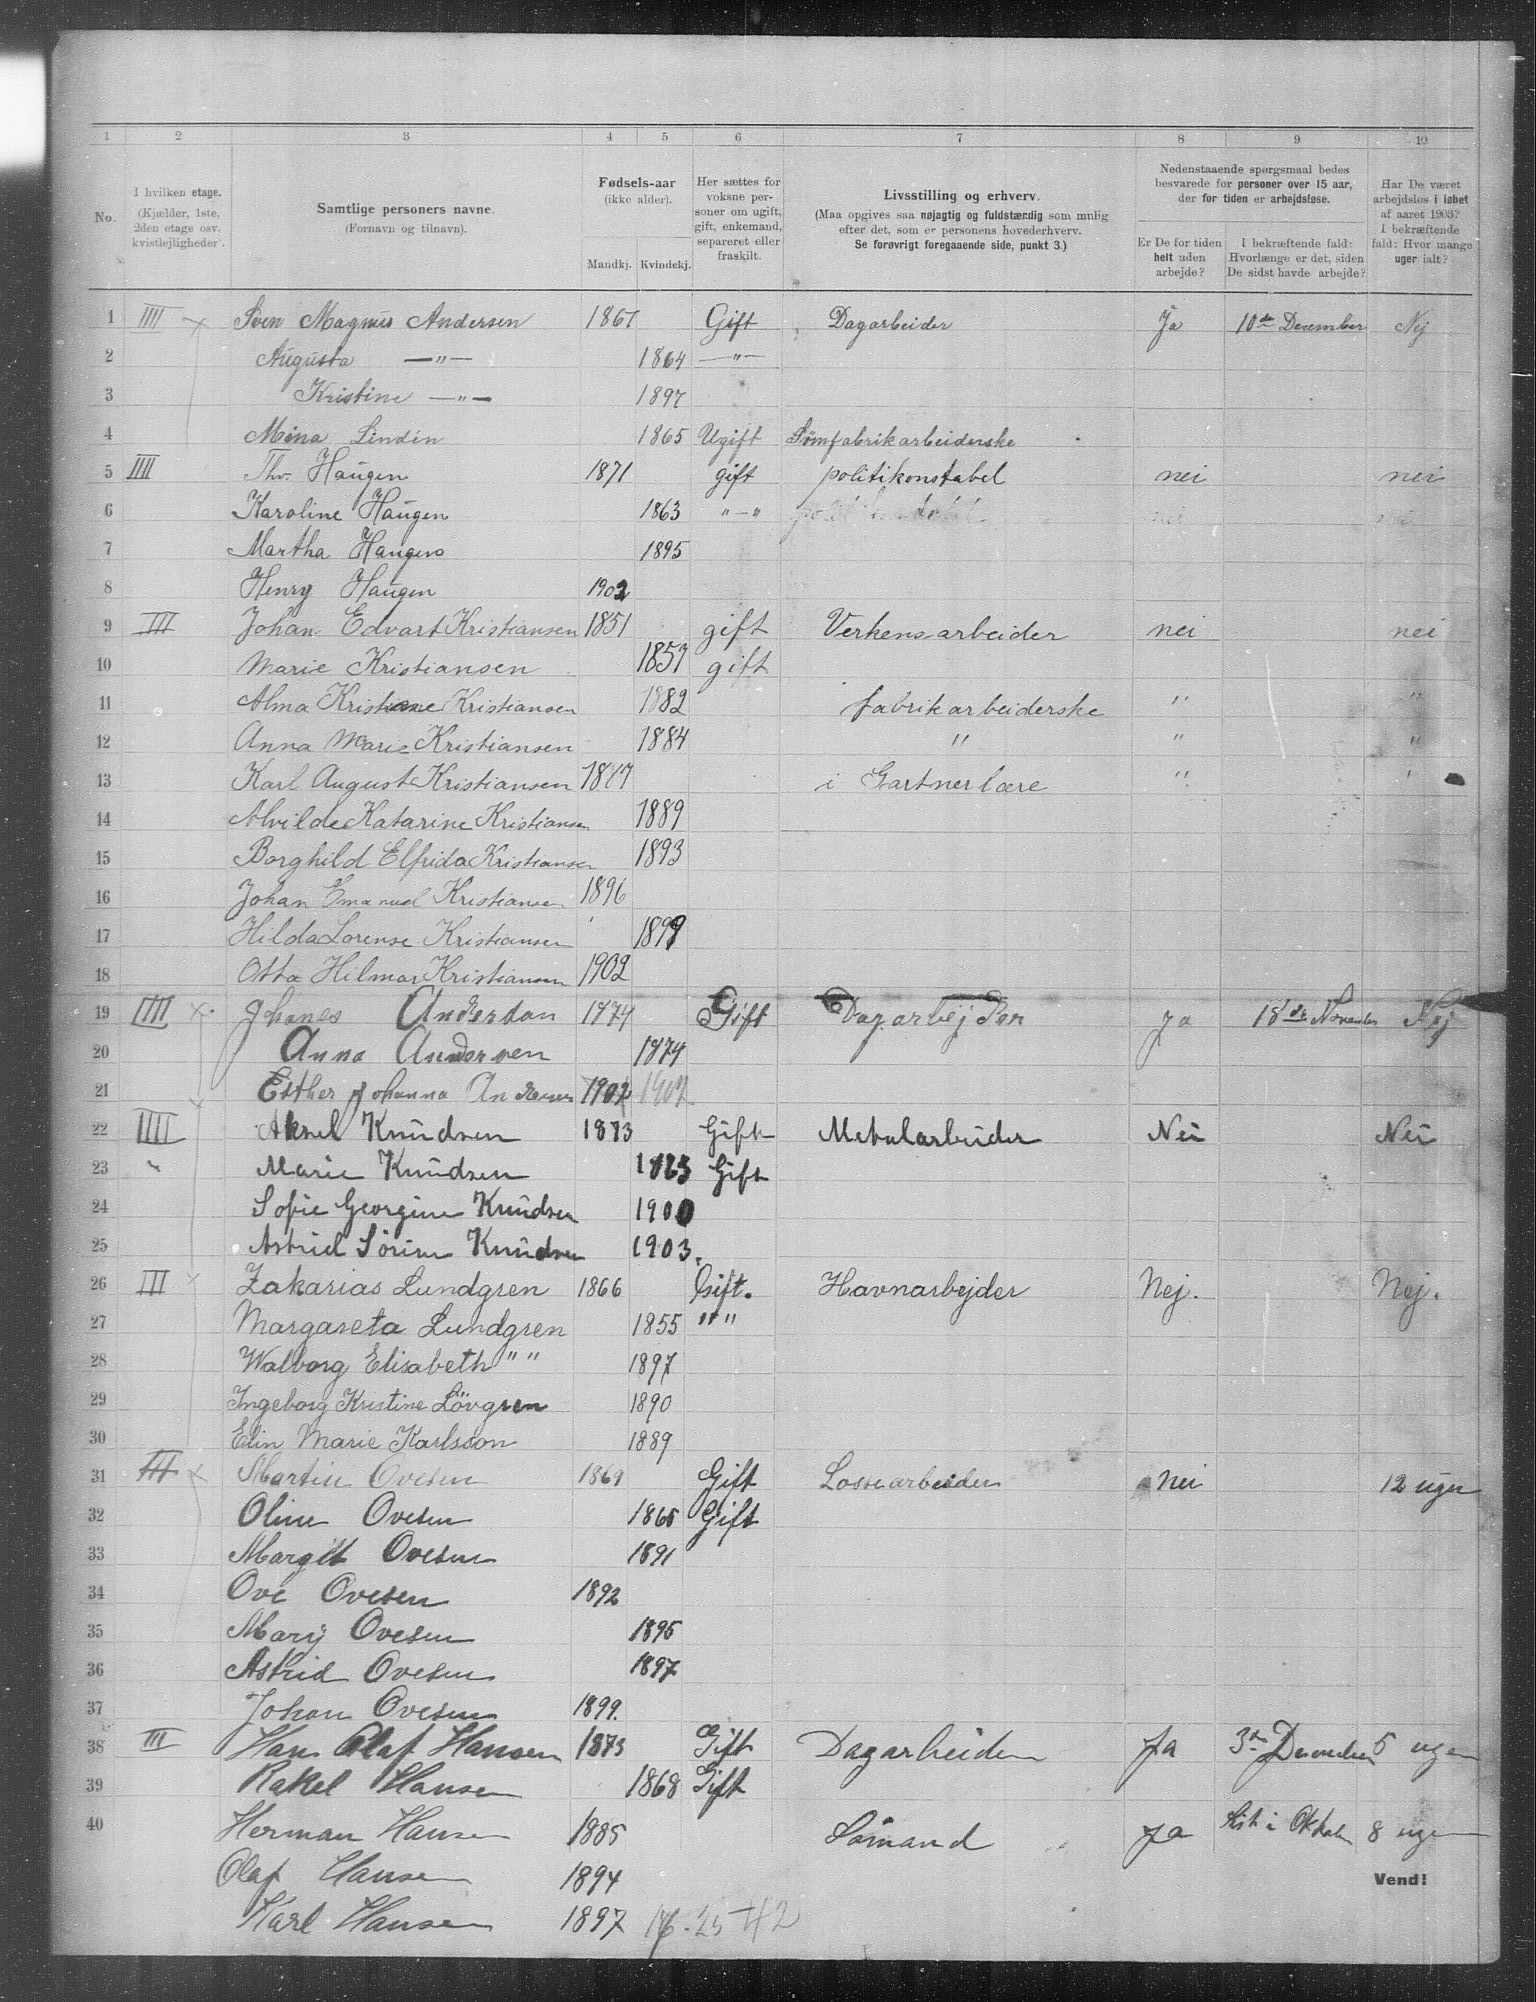 1 2 3 4 5 6 7 8 9 10
No.
I hvilken etage.
(Kjælder, 1ste, 2den etage osv. kvistlejligheder).
Samtlige personers navne.
(Fornavn og tilnavn).
Fødsels-aar
(ikke alder).
Mandkj. Kvindekj.
Her sættes for voksne personer om ugift, gift, enkemand, separeret eller fraskilt.
Livsstilling og erhverv.
(Maa opgives saa nøjagtig og fuldstændig som mulig efter det, som er personens hovederhverv.
Se forøvrigt foregaaende side, punkt 3.)
Nedenstaaende spørgsmaal bedes besvarede for personer over 15 aar, der for tiden er arbejdsløse.
Er De for tiden helt uden arbejde?
I bekræftende fald: Hvorlænge er det, siden De sidst havde arbejde?
Har De været arbejdsløs i løbet af aaret 1903? I bekræftende fald: Hvor mange uger ialt?
1 IIII Sven Magnus Andersen 1867 Gift Dagarbeider Ja 10de December Nej
2 Augusta —"— 1864 —"—
3 Kristine —"— 1897
4 Mina Lindin 1865 Ugift Sömfabrikarbeiderske
5 IIII Thv. Haugen 1871 gift politikonstabel nei nei
6 Karoline Haugen 1863 "—"
7 Martha Haugen 1895
8 Henry Haugen 1902
9 III Johan Edvart Kristiansen 1851 gift Verkensarbeider nei nei
10 Marie Kristiansen 1857 gift
11 Alma Kristiane Kristiansen 1882 fabrikarbeiderske " "
12 Anna Marie Kristiansen 1884 " " "
13 Karl August Kristiansen 1887 i Gartnerlære " "
14 Alvilde Katarine Kristiansen 1889
15 Borghild Elfrida Kristiansen 1893
16 Johan Emanuel Kristiansen 1896
17 Hilda Lorense Kristiansen 1899
18 Otto Hilmar Kristiansen 1902
19 IIII Johanes Andersan 1874 Gift Dagarbejder ja 18de November Nej
20 Anna Andersen 1874
21 Esther Johanna Andersen 1902 1902
22 IIII Aksel Knudsen 1873 Gift Metalarbeider Nei Nei
23 " Marie Knudsen Gift
24 Sofie Georgine Knudsen 1900
25 Astrid Sörine Knudsen 1903.
26 III Zakarias Lundgren 1866 Gift. Havnarbejder Nej. Nej.
27 Margareta Lundgren 1855 " "
28 Walborg Elisabeth " " 1897
29 Ingeborg Kristine Lövgren 1890
30 Elin Marie Karlsson 1889
31 III Martin Ovesen 1869 Gift Lossearbeider Nei 12 uger
32 Oline Ovesen 1865 Gift
33 Margit Ovesen 1891
34 Ove Ovesen 1892
35 Mary Ovesen 1895
36 Astrid Ovesen 1897
37 Johan Ovesen 1899.
38 III Hans Olaf Hansen 1873 Gift Dagarbeider Ja 3die Desember 5 uger
39 Rakel Hansen 1868 Gift
40 Herman Hansen 1885 Sömand Ja Sist i Oktober 8 uger
Olaf Hansen 1894
Vend!
Karl Hansen 1897 17-25-42